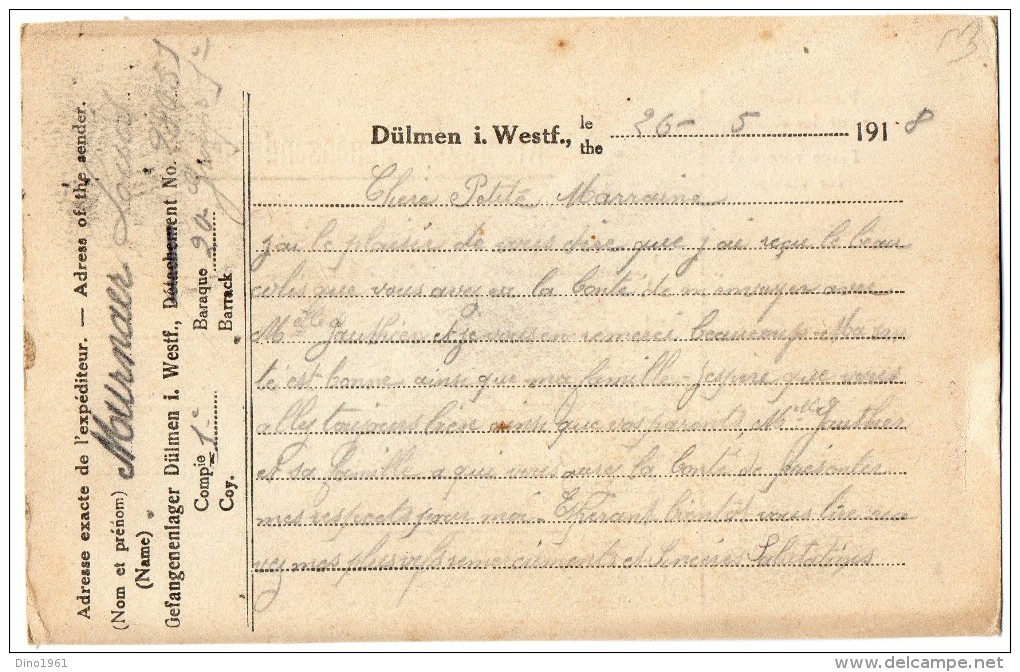 Adresse exacte de l'expéditeur. — Adress of the sender.
(Nom et prénom) Mournaer
(Name)
Gefangenenlager Dülmen i. Westf., Détachement No.
Compie 1e Baraque 90
Coy. Barrack
Dülmen i. Westf., le 26 - 5 1918
the
Chère Petite Marraine
j'ai le plaisir de vous dire que j'ai reçu le beau
que vous avez eu la bonté de m'envoyer avec
Melle Gauthier et je vous en remerci beaucoup. Ma san
té est bonne ainsi que ma famille. J'espère que vous
allez toujours bien ainsi que vos parents, Melle Gauthier
et sa famille a qui vous aurez la bonté de présenter
mes respects pour moi. Espérant bientôt vous lire rece
vez mes plus vifs remerciements et sincères Salutations
Dino1961
www.delcampe.net